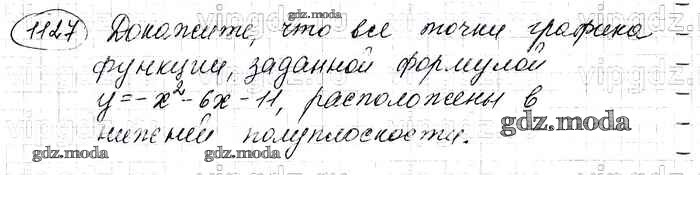 1127 Докажите, что все точки графика
функции, заданной формулой
y=-x²-6x-11, расположены в
нижней полуплоскости.
gdz.moda
gdz.moda
gdz.moda
gdz.moda
gdz.moda